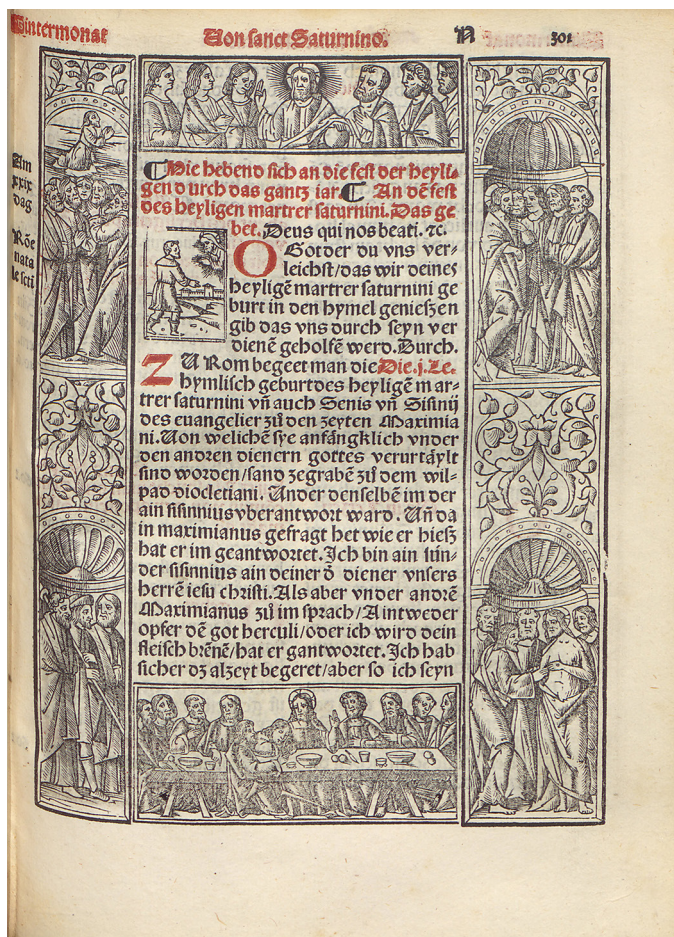 Wintermonat
Von sanct Saturnino.
N
301
Am
xxix
dag
Rõe
nata
le sctí
¶ Hie hebend sich an die fest der heyli-
gen d urch das gantz iar. ¶ An dẽ fest
des heyligen martrer saturnini. Das ge
bet. Deus qui nos beati. ⁊c.
O Got der du vns ver-
leichst/das wir deines
heyligẽ martrer saturnini ge
burt in den hymel geniessen
gib das vns durch seyn ver
dienẽ geholfẽ werd. Durch.
ZU Rom begeet man die Die .j. Le.
hymlisch geburt des heyligẽ m ar-
trer saturnini vñ auch Senis vñ Sisinij
des euangelier zů den zeyten Maximia
ni. Von welichẽ sye anfängklich vnder
den andren dienern gottes verurtaylt
sind worden/sand zegrabẽ zů dem wil-
pad diocletiani. Under denselbẽ im der
ain sisinnius vberantwort ward. Uñ da
in maximianus gefragt het wie er hiesz
hat er im geantwortet. Ich bin ain sün-
der sisinnius ain deiner ď diener vnsers
herrẽ iesu christi. Als aber vnder andrẽ
Maximianus zů im sprach/A intweder
opfer dẽ got herculi/oder ich wird dein
fleisch brẽnẽ/hat er gantwortet. Ich hab
sicher dz alzeyt begeret/aber so ich seyn